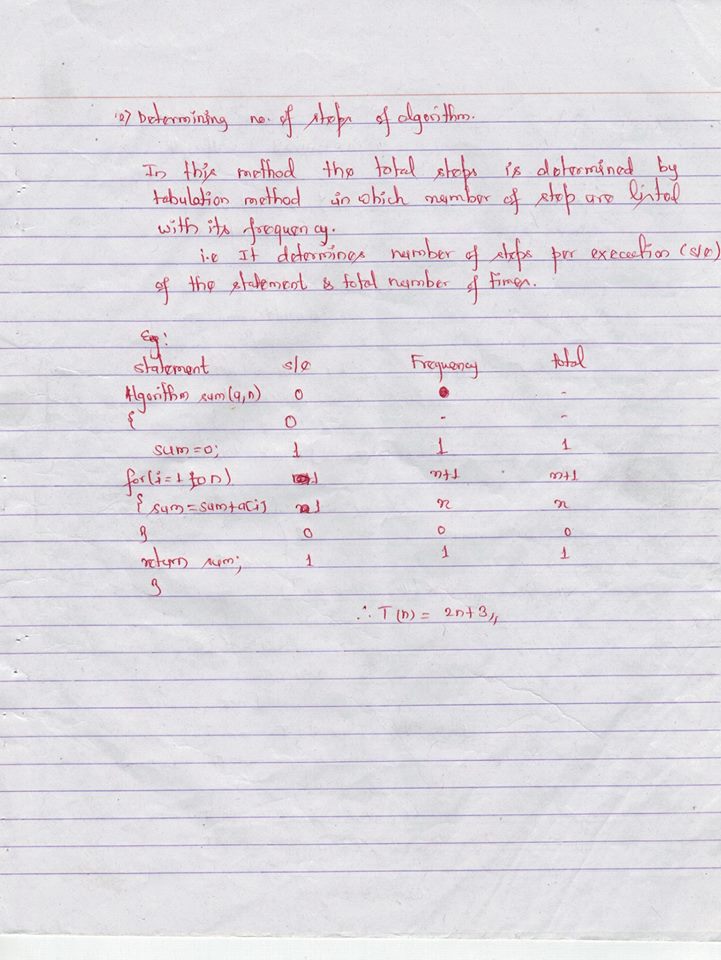 2) Determining no. of steps of algorithm.
In this method the total steps is determined by
tabulation method in which number of step are listed
with its frequency.
i.e It determines number of steps per execution (s/e)
of the statement & total number of times.
Eg:
statement s/e Frequency total
Algorithm sum(a,n) 0 -
{ 0 - -
sum=0; 1 1 1
for(i=1 to n) 1 n+1 n+1
{ sum=sum+a[i] 1 n n
} 0 0 0
return sum; 1 1 1
}
∴ T(n) = 2n+3,,